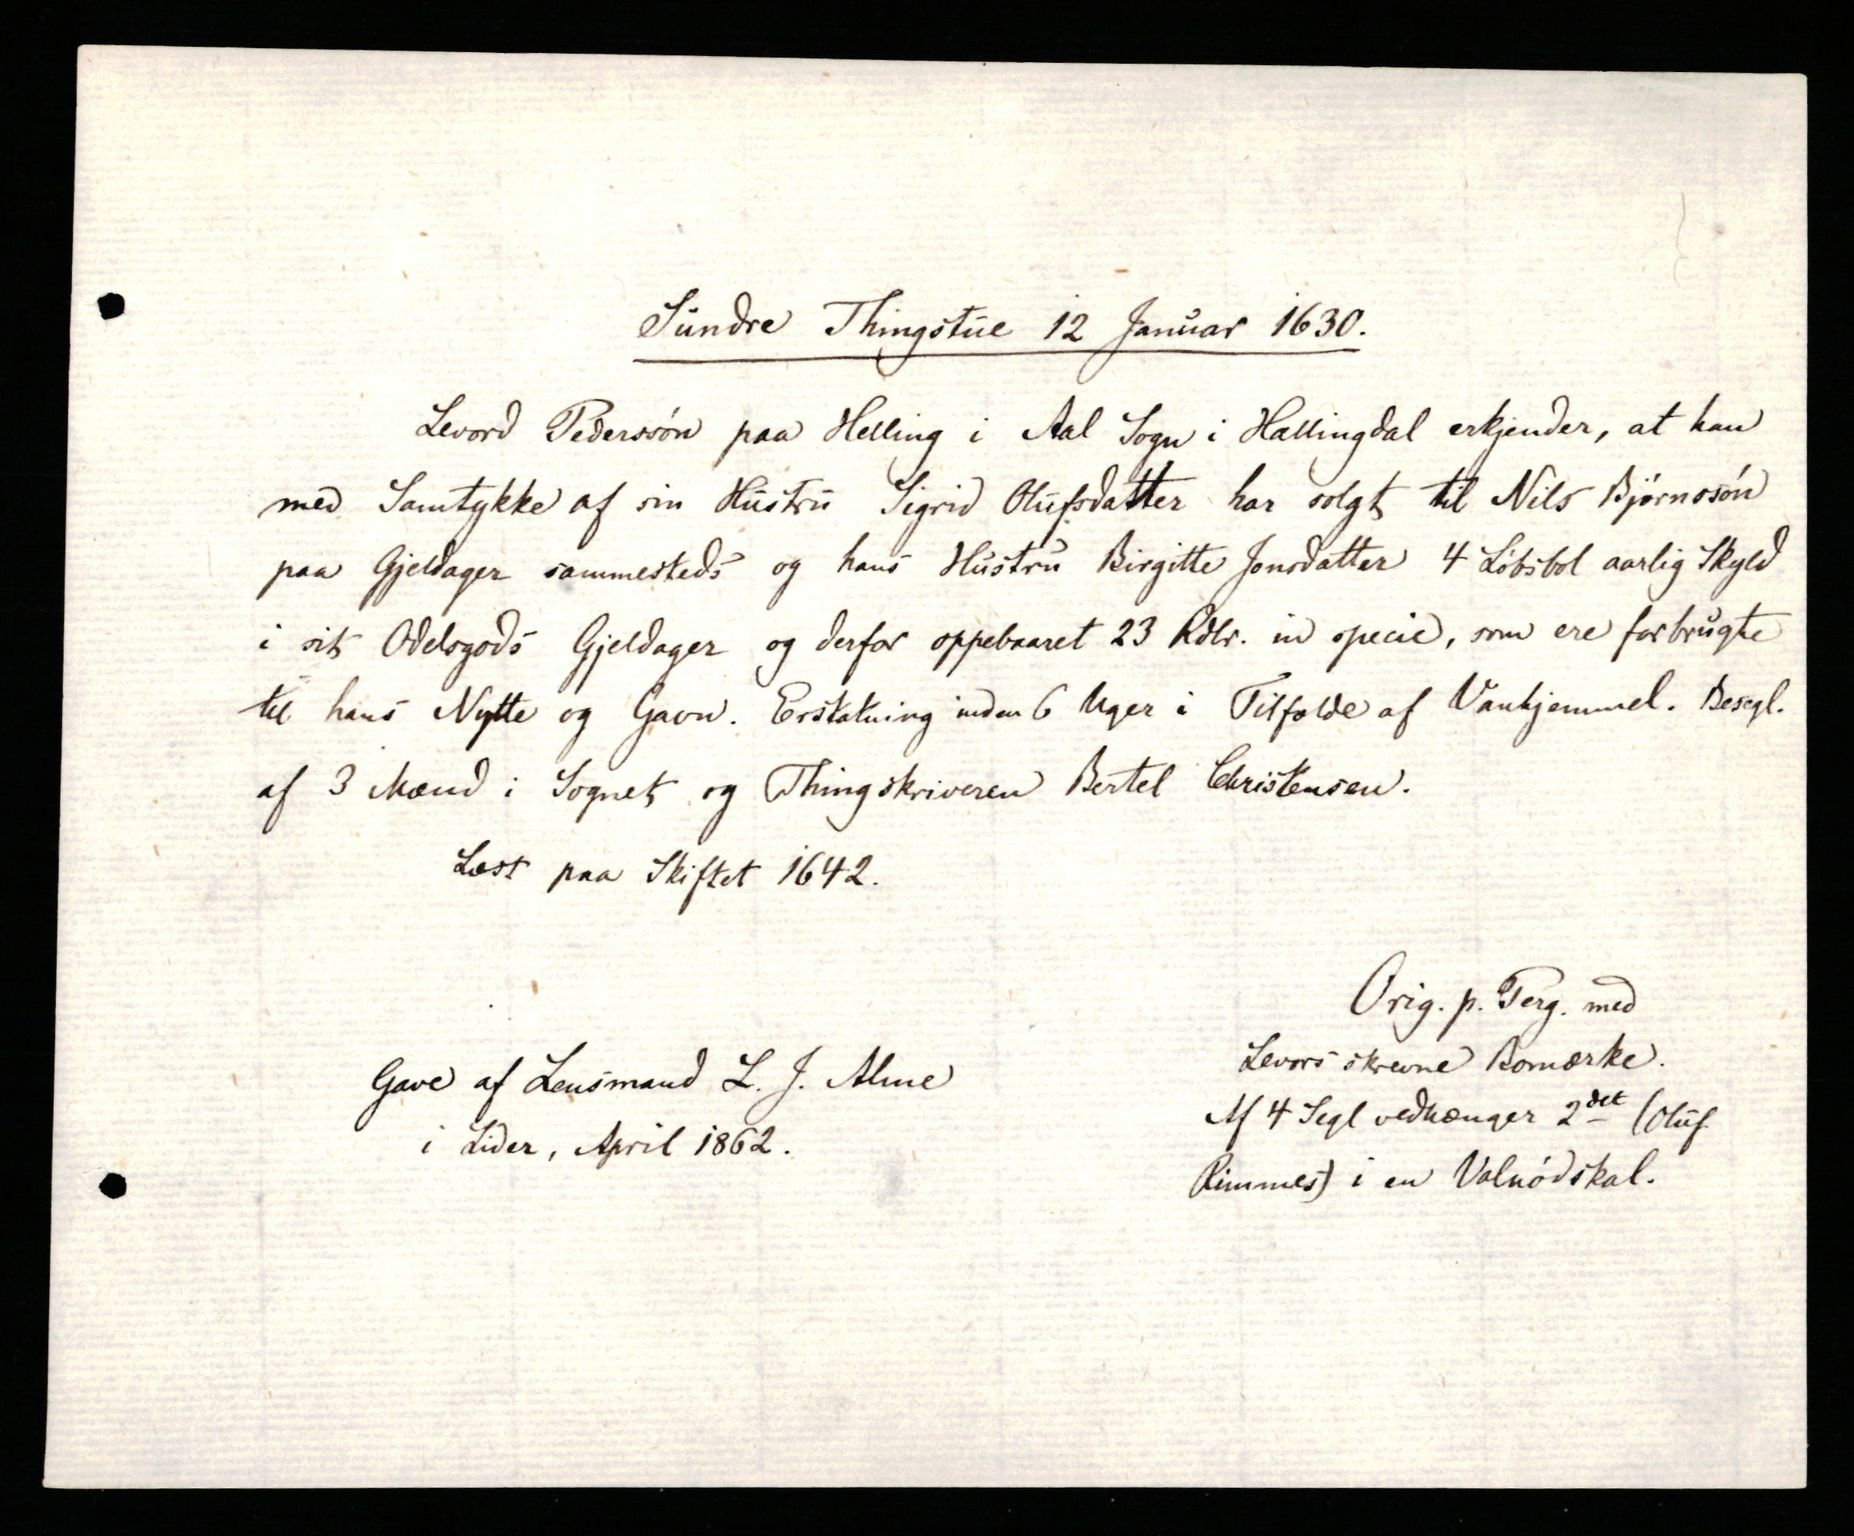 Sundre Thingstue 12 Januar 1630.
Levord Pederssøn paa Helling i Aal Sogn i Hallingdal erkjender, at han
med Samtykke af sin Hustru Sigrid Olufsdatter har solgt til Nils Bjørnssøn
paa Gjeldager sammesteds og hans Hustru Birgitte Jonsdatter 4 Løbsbol aarlig Skyld
i sit Odelsgods Gjeldager og derfor oppebaaret 23 Rdlr. in specie, som ere forbrugte
til hans Nytte og Gavn. Erstatning inden 6 Uger i Tilfælde af Vanhjemmel. Besegl.
af 3 Mænd i Sognet og Thingskriveren Bertel Christensen.
Læst paa Skiftet 1642.
Orig. p. Perg. med
Levors skrevne Bomærke.
Af 4 Segl vedhænger 2det (Oluf
Rimmes) i en Valnødskal.
Gave af Lensmand L. J. Alme
i Lider, April 1862.